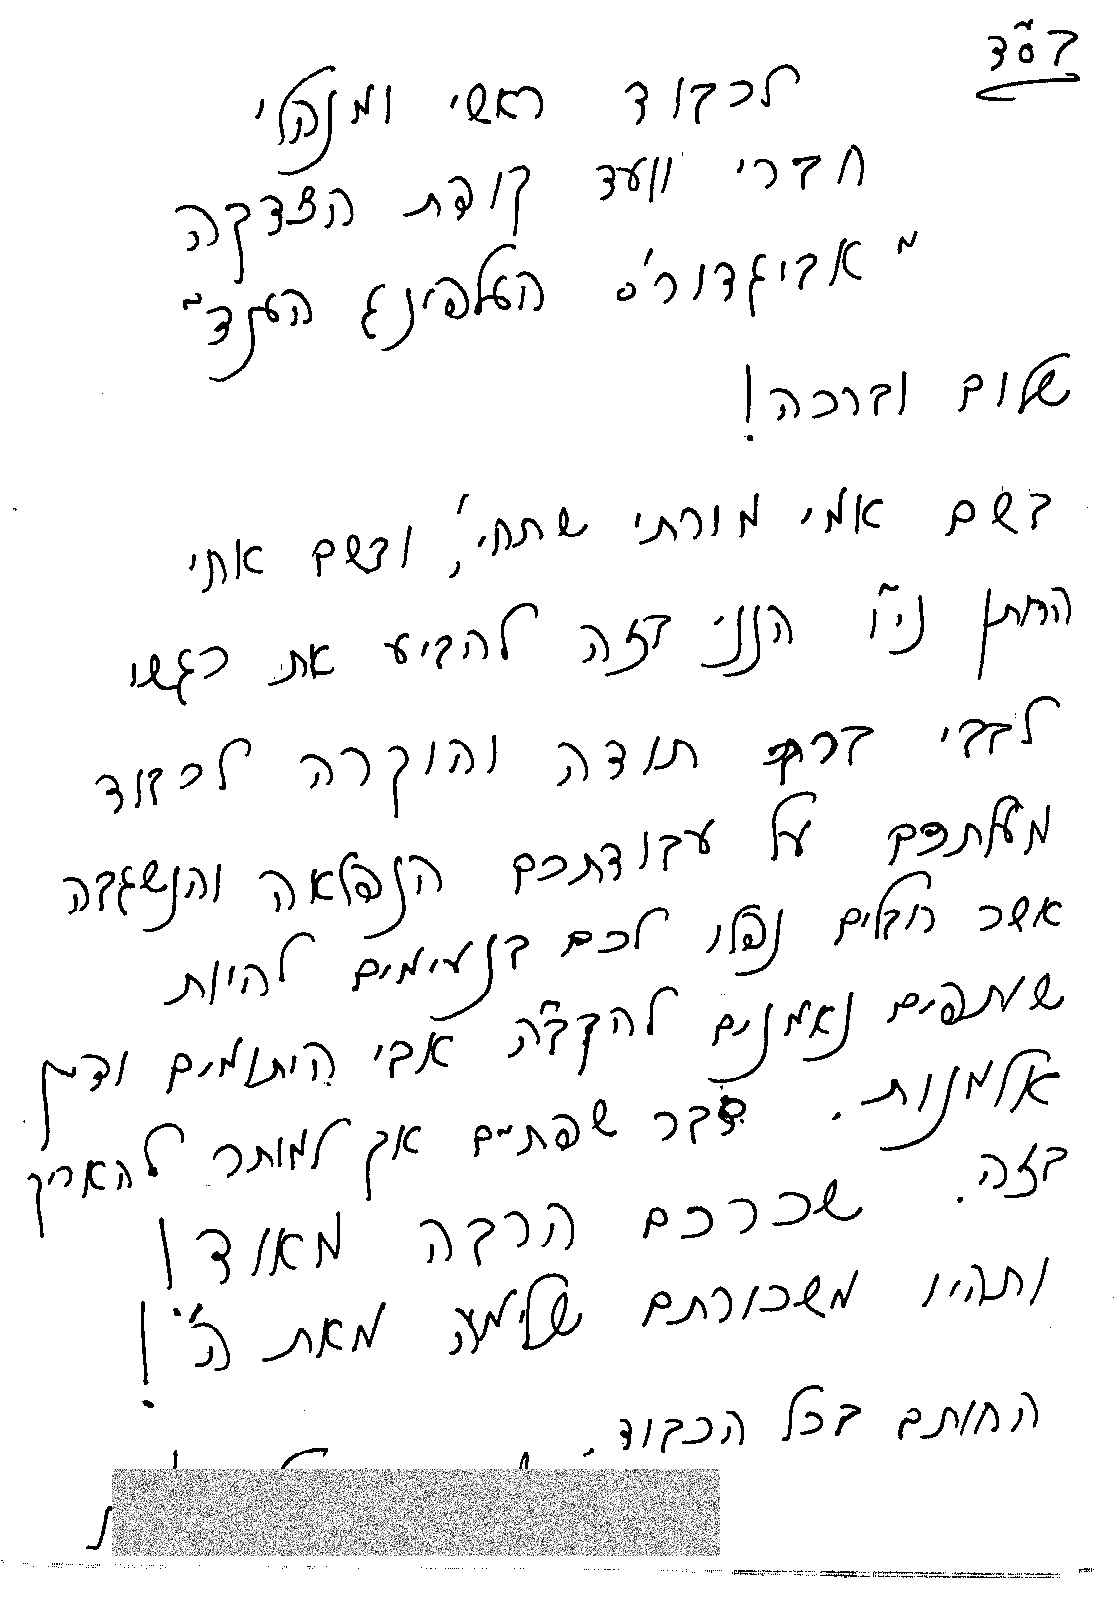 בס"ד
לכבוד ראשי ומנהלי
חברי וועד קופת הצדקה
"אביגדור'ס העלפינג הענד"
שלום וברכה!
בשם אמי מורתי שתחי', ובשם אחי
החתן ני"ו הנני בזה להביע את רגשי
לבבי ברוב תודה והוקרה לכבוד
מעלתכם על עבודתכם הנפלאה והנשגבה
אשר חבלים נפלו לכם בנעימים להיות
שותפים נאמנים להקב"ה אבי היתומים ודיין
אלמנות. דבר שפתיים אך למותר להאריך
בזה. שכרכם הרבה מאוד!
ותהיו משכורתם שלימה מאת ה'!
החותם בכל הכבוד.